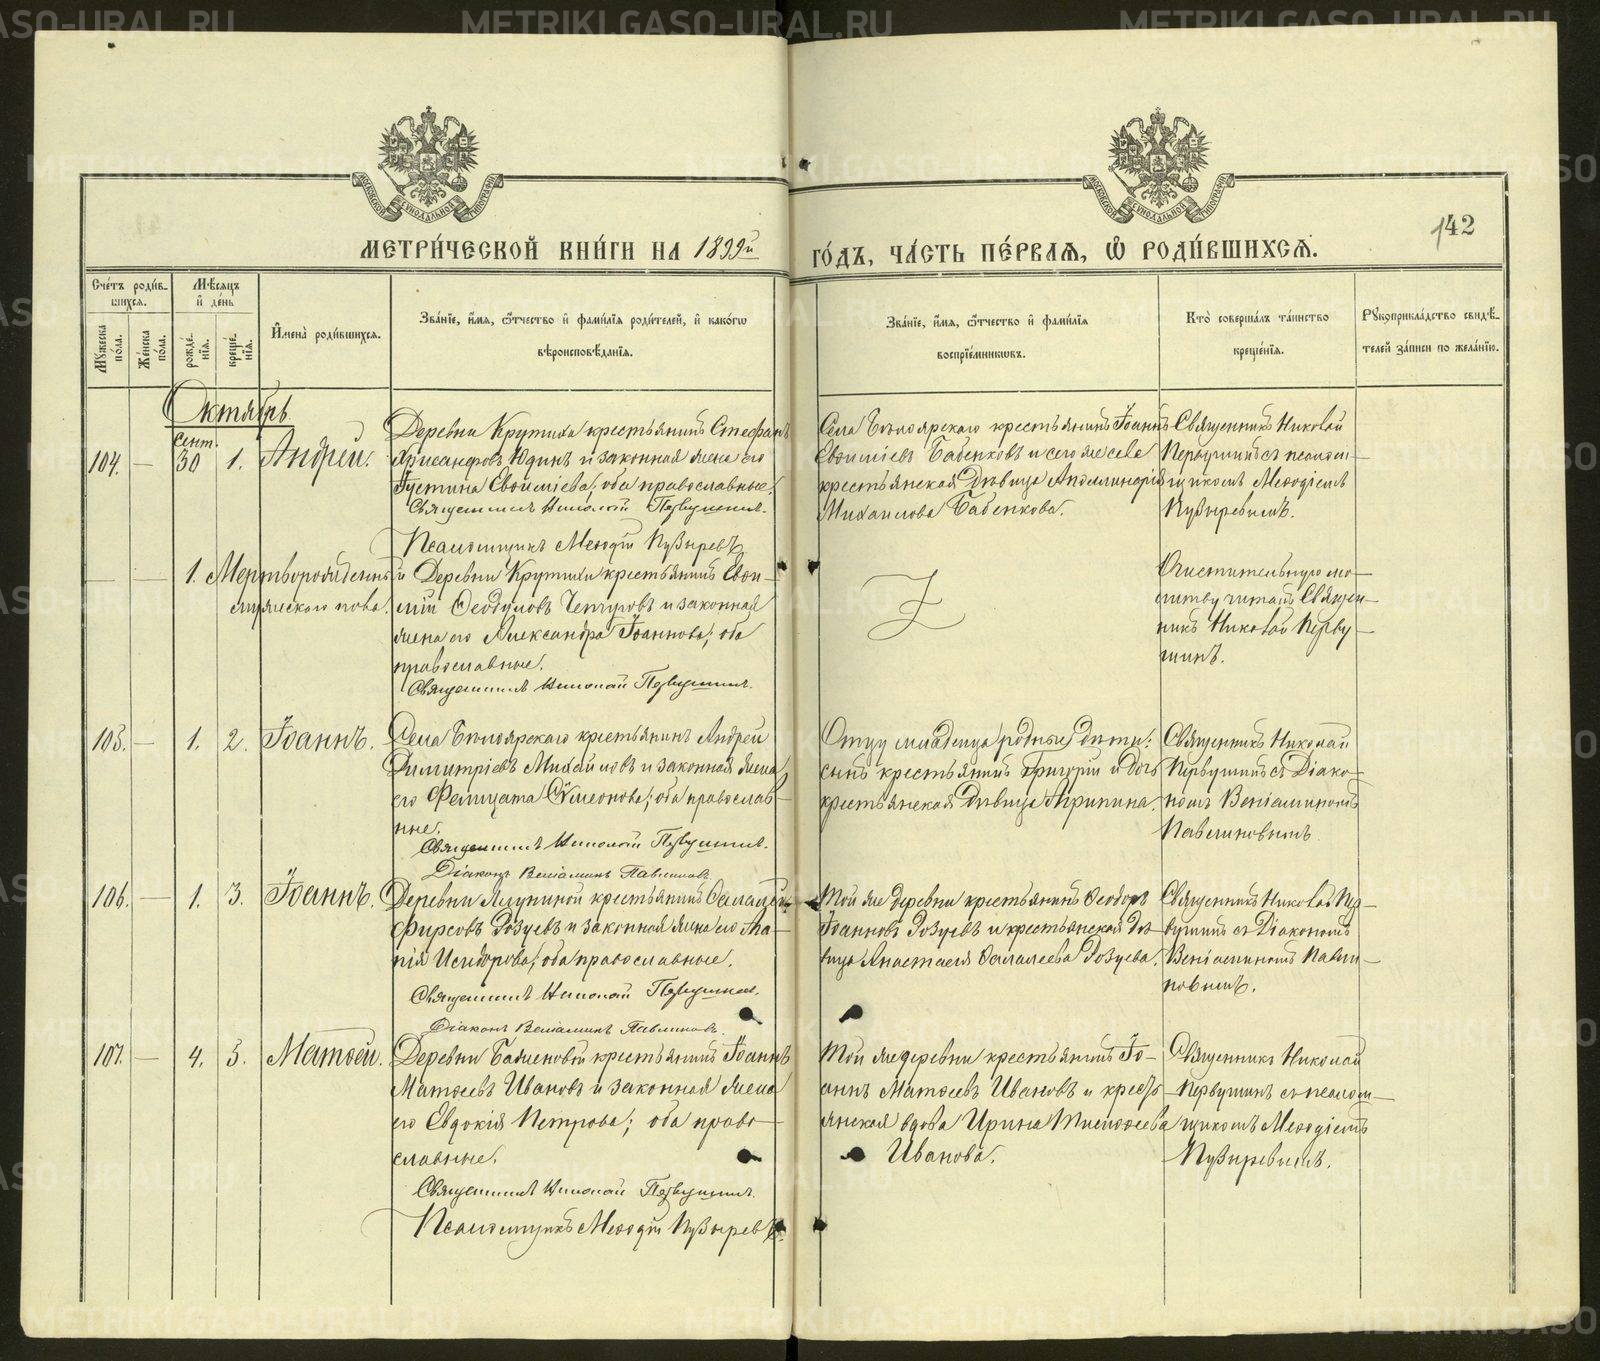 МЕТРИ́ЧЕСКОЙ КНИ́ГИ НА 1899й ГО́ДЪ, ЧА́СТЬ ПЕ́РВАЯ, Ѡ РОДИ́ВШИХСЯ.
142
Сче́тъ роди́в-
шихся.
Мѣ́сяцъ
и де́нь
Му́жеска по́ла.
Же́нска по́ла.
рожде́-
нія.
креще́-
нія.
Имена̀ роди́вшихся.
Зва́ніе, и́мя, о́тчество и фами́лія роди́телей, и како́гѡ
вѣроисповѣ́данія.
Зва́ніе, и́мя, о́тчество и фами́лія
воспріе́мникѡвъ.
Кто̀ соверша́лъ та́инство
креще́нія.
Рукоприкла́дство свидѣ́-
телей за́писи по жела́нію.
Октябрь
104. — Сент. 30 1. Андрей.
Деревни Крутихи крестьянинъ Стефанъ
Хрисанфовъ Юдинъ и законная жена его
Іустина Евоиміева; оба православные.
Священникъ Николай Первушинъ.
Псаломщикъ Меѳодій Пузыревъ
Села Бѣлоярскаго крестьянинъ Іоаннъ
Евоиміевъ Бабенковъ и сего же села
крестьянская дѣвица Аполлинарія
Михаилова Бабенкова.
Священникъ Николай
Первушинъ съ псалом-
щикомъ Меѳодіемъ
Пузыревымъ.
— — 1. Мертворожденный
мужескаго пола.
Деревни Крутихи крестьянинъ Евѳи-
мій Ѳеодуловъ Чепчуговъ и законная
жена его Александра Іоаннова; оба
православные.
Священникъ Николай Первушинъ.
Очистительную мо-
литву читалъ Священ-
никъ Николай Перву-
шинъ.
105. — 1. 2. Іоаннъ.
Села Бѣлоярскаго крестьянинъ Андрей
Димитріевъ Михайловъ и законная жена
его Фелицата Сѵмеонова; оба православ-
ные.
Священникъ Николай Первушинъ.
Діаконъ Веніаминъ Павлиновъ.
Отцу младенца родные дѣти:
сынъ крестьянинъ Григорій и дочь
крестьянская дѣвица Агрипина.
Священникъ Николай
Первушинъ съ Діако-
номъ Веніаминомъ
Павлиновымъ
106. — 1. 3. Іоаннъ.
Деревни Ялуниной крестьянинъ
Фирсовъ Розуевъ и законная жена его
Исидорова; оба православные.
Священникъ Николай Первушинъ.
Діаконъ Веніаминъ Павлиновъ.
Той же деревни крестьянинъ Ѳеодоръ
Іоанновъ Розуевъ и крестьянская дѣ-
вица Анастасія Розуева.
Священникъ Николай Пер-
вушинъ съ Діакономъ
Веніаминомъ Павли-
новымъ.
107. — 4. 5. Матѳей.
Деревни Баженовой крестьянинъ Іоаннъ
Матѳеевъ Ивановъ и законная жена
его Евдокія Петрова; оба право-
славные.
Священникъ Николай Первушинъ.
Псаломщикъ Меѳодій Пузыревъ.
Той же деревни крестьянинъ Іо-
аннъ Матѳеевъ Ивановъ и кресть-
янская вдова Ирина Тимоѳеева
Иванова.
Священникъ Николай
Первушинъ съ псалом-
щикомъ Меѳодіемъ
Пузыревымъ.
METRIKI.GASO-URAL.RU